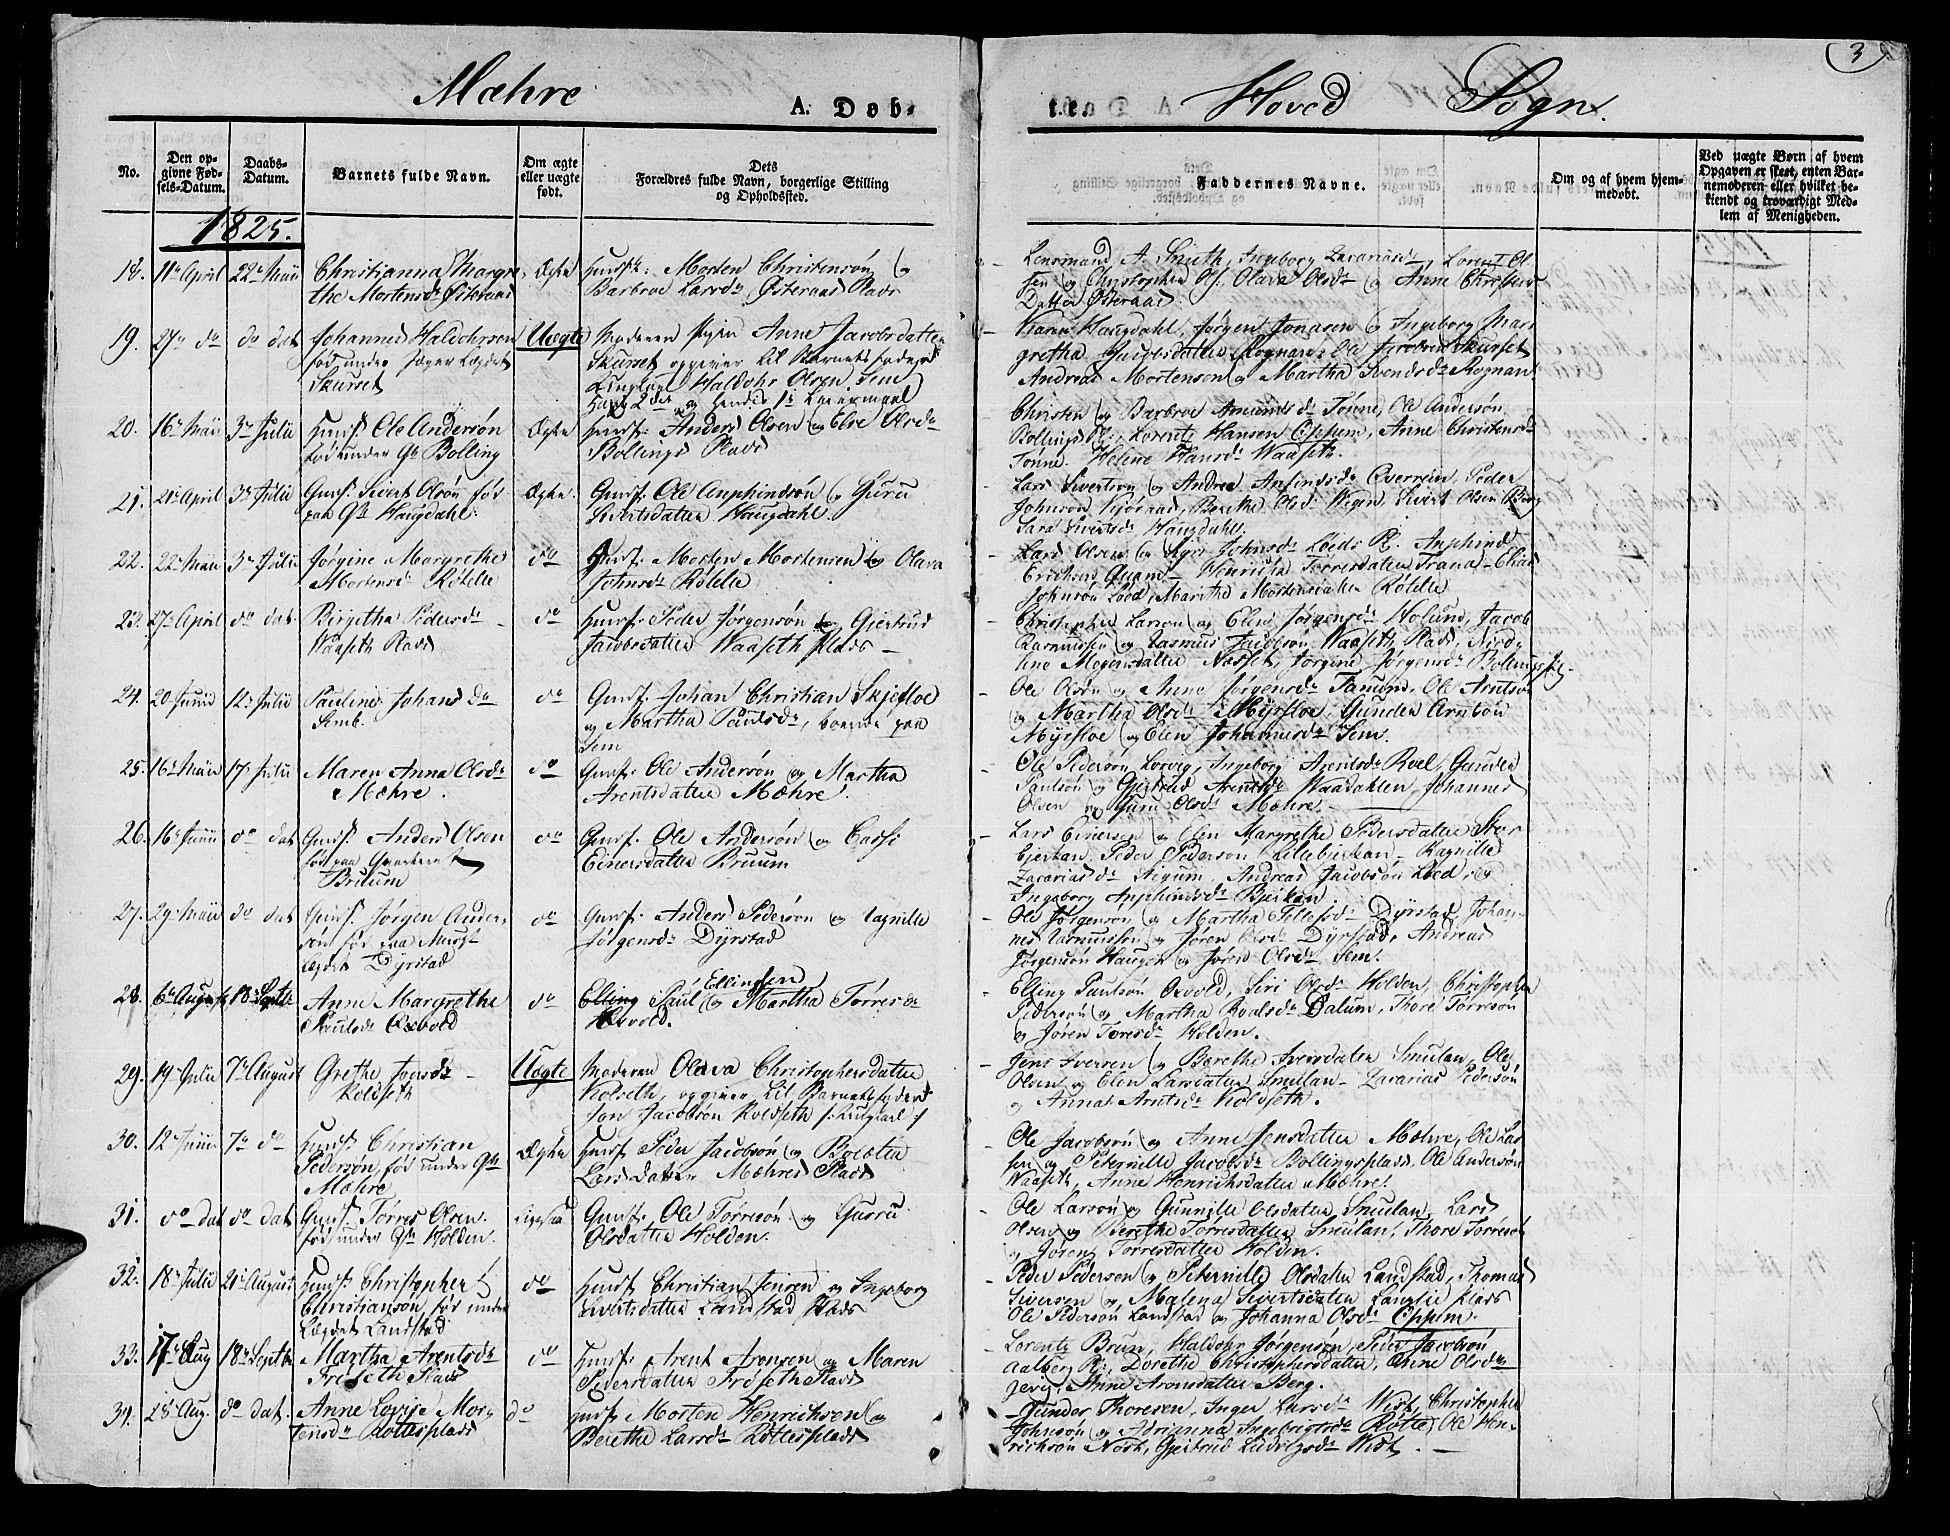 3
Mæhre
A. Døb-
te.
Hoved Sogn.
No.
Den op-
givne Fød-
sels-Datum.
Daabs-
Datum.
Barnets fulde Navn.
Om ægte
eller uægte
født.
Dets
Forældres fulde Navn, borgerlige Stilling
og Opholdssted.
Faddernes Navne.
Om og af hvem hjem-
medøbt.
Ved uægte Børn af hvem
Opgaven er skeet, enten Bar-
nemoderen eller hvilket be-
kiendt og troværdigt Med-
lem af Menigheden.
1825.
18. 11te April 22de Maii Christianna Margre-
the Mortensdr Østeraas
Ægte
Huusf: Morten Christensøn og
Barbroe Larsdr Østeraas Plads
Lensmand A. Smith, Ingeborg Zacariasdr, Lorentz Ol-
sen og Christopher Ols. Olava Olsdr og Anne Christens
Datter Østeraas
19. 27de do do dat Johannes Haldohrsøn
Skusset
Uægte
Moderen Pigen Anne Jacobsdatter
Skusset opgiver til Barnets fader
Ungkarl Haldohr Olsen Sem
hans 2det og hendes 1ste Leiermaal
Haugdahl, Jørgen Jonasen og Ingeborg Mar-
gretha Rognan, Ole Jacobsen Skusset
Andreas Mortensen og Martha Svendsdr Rognan
20. 16de Maii 3die Julii Huusf. Ole Andersøn
fød under Gr Bolling
Ægte
Huusf: Anders Olsen og Else Olsdr
Bollings Plads
Christen og Barbroe Amundsdr Tønne, Ole Andersøn
Bollings Pl., Lorentz Hansen Oppem, Anne Christensdr
Tønne. Helene Hansdr Waaseth.
21. 21de April 3die Julii Gaardf. Sivert Olsøn fød
paa Gr Haugdahl
Ægte.
Gaardf. Ole Anphindsøn og Guru
Sivertsdatter Haugdahl.
Lars Sivertsen og Andrea Anfindsdr Overrein, Peder
Johnsøn, Berethe Olsdr Wegen, Sivert Olsen Berg
Sara Sivertsdr Haugdahl
22. 22de Maii 3die Julii Jørgine Margrethe
Mortensdr Røtte
do
Huusf: Morten Mortensen og Olava
Johnsdr Røtte
Lars Olsen og Johnsdr Loeds Pl. Anphind
Erichsen Quam, Henricha Torresdatter Trana, Elias
Johnsøn Loed, Marethe Mortensdatter Røtte
23. 27de April do dat. Birgitha Pedersdr
Waaseth Plads
do
Huusf. Peder Jørgensøn og Giertrud
Jacobsdatter Waaseth Plads
Christopher Larsøn og Elen Jørgensdr Holund, Jacob
Rasmussen og Rasmus Jacobsøn Waaseth Plads
Mogensdatter Aasset, Jørgine Jørgensdr Bollingspl.
24. 20de Junii 12te Julii Pauline Johans Dr
Semb.
do
Gaardf. Johan Christian Skjefloe
og Martha Paulsdr, boende paa
Sem
Ole Olsøn og Anne Jørgensdr Fanum, Ole Arntsøn
og Martha Olsdr Myrfloe, Gunder Arntsøn
Myrfloe og Elen Johannesdr Sem.
25. 16de Maii 17de Julii Maren Anna Olsdr
Mæhre.
do
Gaardf. Ole Andersøn og Martha
Arentsdatter Mæhre.
Ole Pedersøn Lorvig, Ingeborg Arentsdr Roel, Gunder
Paulsøn og Giertrud Arentsdr Waadahlen, Johannes
Olsen og Guru Olsdr Mæhre.
26. 16de Junii do dat Gaardf. Anders Olsen
Bruum
do
Gaardf. Ole Andersøn og Cassi
Einersdatter Bruum
Lars Einersen og Elen Margrethe Pedersdatter Stor-
bjerkan. Peder Pedersøn Lillebjerkan, Ragnille
Zacariasdr Aigum, Andreas Jacobsøn Loed, og
Ingeborg Anphindsdr Bjerkan
27. 29de Maii do dat Gaardf. Jørgen Ander-
søn fød paa
Lægdet Dyrstad
do
Gaardf. Anders Pedersøn og Ragnille
Jørgensdr Dyrstad
Ole Jørgensøn og Martha Tillefsdr Dyrstad, Johan-
nes Rasmussen og Jøren Olsdr Dyrstad, Andreas
Jørgensøn Haugan og Jøren Olsdr Sem.
28. 6te August 18de Septbr Anne Margrethe
Paulsdr Oxvold
do
Elling Paul Ellingsen og Martha Torresdr
Oxvold.
Elling Paulsøn Oxvold, Siri Olsdr Holden, Christopher
Pedersøn og Martha Roalsdr Dalum, Thore Torresøn
og Jøren Toresdr Holden.
29. 19de Julii 7de August Grethe Jonsdr
Koldseth
Uægte
Moderen Olava Christophersdatter
Kolseth, opgiver til Barnets fader
Jon Jacobsøn Koldseth /:Ungkarl:/
Jens Iversen og Berethe Iversdatter Smulan, Ole
Olsen og Elen Larsdatter Smulan, Zacarias Pedersøn
og Anna Arntsdr Koldseth.
30. 12te Junii 7de do Huusf. Christian
Pedersøn, fød under Gr
Mæhre
Ægte
Huusf Peder Jacobsøn og Bolætta
Lars datter Mæhres Plads
Ole Jacobsøn og Anne Jensdatter Mæhre, Ole Lar-
sen og Peternille Jacobsdr Bollingsplads, Ole Andersøn
Waaseth, Anne Henrichsdatter Mæhre.
31. do dat do dat Gaardf. Torres Olsen.
fød under Gr Holden.
Ligesaa
Gaardf. Ole Torresøn og Guru
Olsdatter Holden.
Ole Larsøn og Gunnille Olsdatter Smulan, Lars
Olsen og Berethe Torresdatter Smulan, Thore Torresøn
og Jøren Torresdatter Holden.
32. 18de Julii 21de August Huusf. Christopher
Christiansøn, fød under
Lægdet Landstad
do
Huusf Christian Jensen og Ingeborg
Sivertsdatter Landstad Plads
Peder Pedersen og Peternille Olsdatter Landstad, Thomas
Siversen og Malena Sivertsdatter Langlie Plads
Ole Pedersøn Landstad og Johanna Olsdr Oppem.
33. 17de Aug 18de Septbr Martha Arentsdr
Frøseth Plads
do
Huusf. Arent Aronsen og Maren
Pedersdatter Frøseth Plads
Lorentz Brun, Haldohr Jørgensøn, Peder Jacobsøn
Aalberg Pl., Dorethe Christophersdatter, Anne Olsdr
Anne Aronsdatter Berg.
34. 28de Aug. do dat. Anne Lovise Mor-
tensdr Røttesplads
do
Huusf Morten Henrichsen og
Berethe Larsdr Røttesplads
Gunder Thoresen, Inger Larsdr Wist, Christopher
Johnsøn og Adrianna Ingebrigtsdr Røtte, Ole Hen-
richsøn, Giertrud Ludvigsdr Wist.